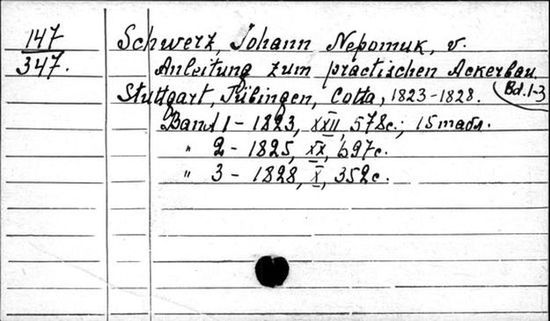 147
347.
Schwerz, Johann Nepomuk, v.
Anleitung zum practischen Ackerbau.
Stuttgart, Tübingen, Cotta, 1823-1828. Bd. 1-3
Band 1 - 1823, XXII, 578с.; 15 табл.
" 2 - 1825, XX, 697с.
" 3 - 1828, X, 352с.